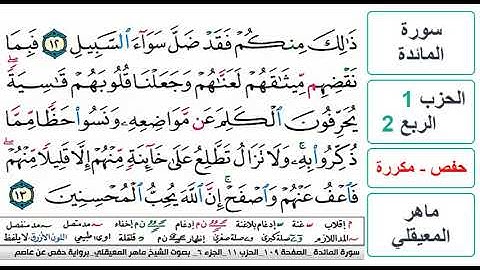 ذَٰلِكَ مِنكُمْ فَقَدْ ضَلَّ سَوَآءَ ٱلسَّبِيلِ ١٢ فَبِمَا
نَقْضِهِم مِّيثَٰقَهُمْ لَعَنَّٰهُمْ وَجَعَلْنَا قُلُوبَهُمْ قَٰسِيَةً ۖ
يُحَرِّفُونَ ٱلْكَلِمَ عَن مَّوَاضِعِهِۦ وَنَسُوا۟ حَظًّا مِّمَّا
ذُكِّرُوا۟ بِهِۦ ۚ وَلَا تَزَالُ تَطَّلِعُ عَلَىٰ خَآئِنَةٍ مِّنْهُمْ إِلَّا قَلِيلًا مِّنْهُمْ ۖ
فَٱعْفُ عَنْهُمْ وَٱصْفَحْ ۚ إِنَّ ٱللَّهَ يُحِبُّ ٱلْمُحْسِنِينَ ١٣
سورة
المائدة
الحزب 1
الربع 2
حفص - مكررة
ماهر
المعيقلي
م إقلاب غنة إدغام بلاغنة م إدغام إخفاء مد متصل مد منفصل
صلة كبرى صلة صغرى قلقلة لايلفظ
سورة المائدة _ الصفحة ١٠٩ _ الحزب ١١ _ الجزء ٦ _ بصوت الشيخ ماهر المعيقلي _ برواية حفص عن عاصم